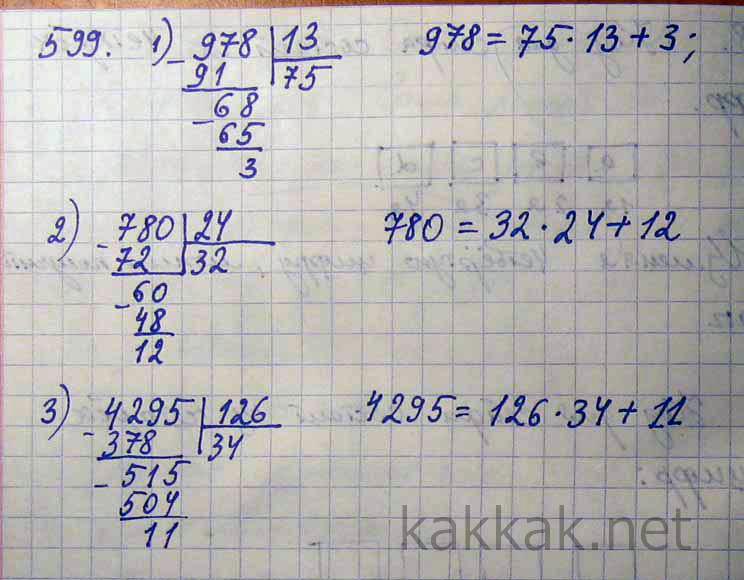 599. 1) - 978 | 13
91 75
- 68
65
3
978 = 75 · 13 + 3;
2) - 780 | 24
72 32
- 60
48
12
780 = 32 · 24 + 12
3) - 4295 | 126
378 34
- 515
504
11
4295 = 126 · 34 + 11
kakkak.net